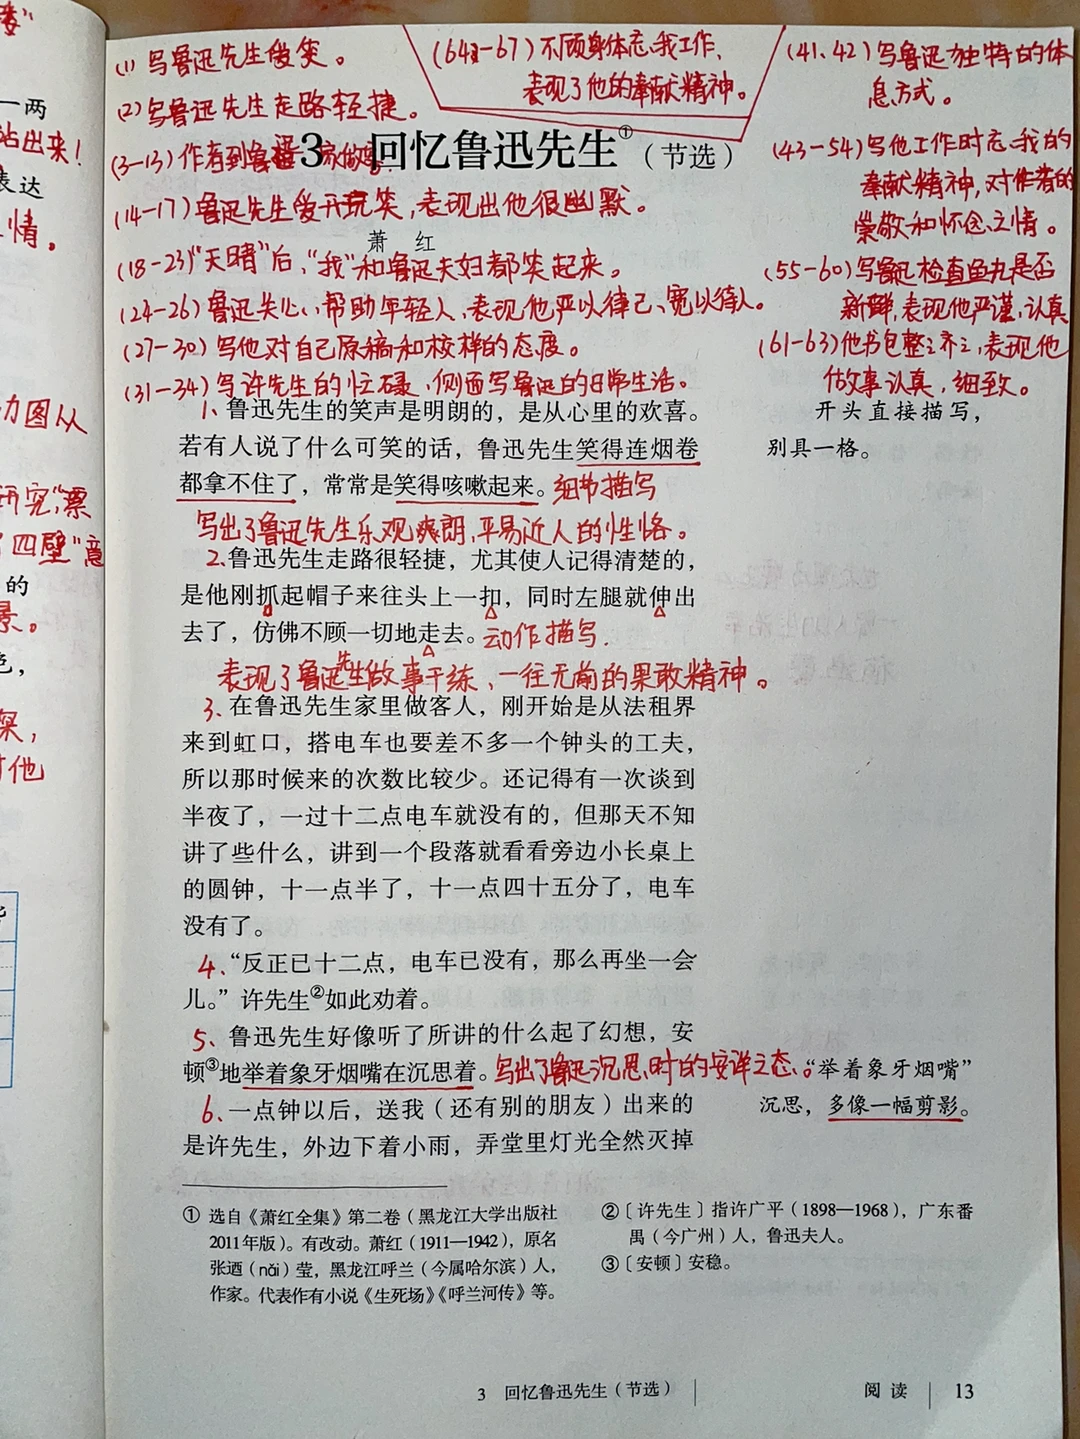 (1) 写鲁迅先生爱笑。
(2) 写鲁迅先生走路轻捷。
(3-13) 作者到鲁迅家做客
(14-17) 鲁迅先生爱开玩笑，表现出他很幽默。
(18-23) “天晴”后，“我”和鲁迅夫妇都笑起来。
(24-26) 鲁迅关心、帮助年轻人、表现他严以律己、宽以待人。
(27-30) 写他对自己原稿和校样的态度。
(31-34) 写许先生的忙碌，侧面写鲁迅的日常生活。
(64-67) 不顾身体忘我工作，
表现了他的奉献精神。
(41、42) 写鲁迅独特的休
息方式。
(43-54) 写他工作时忘我的
奉献精神，对作者的
崇敬和怀念之情。
(55-60) 写鲁迅检查鱼丸是否
新鲜，表现他严谨、认真
(61-63) 他书包整整齐齐，表现他
做事认真，细致。
3 回忆鲁迅先生①（节选）
萧 红
1、鲁迅先生的笑声是明朗的，是从心里的欢喜。
若有人说了什么可笑的话，鲁迅先生笑得连烟卷
都拿不住了，常常是笑得咳嗽起来。细节描写
写出了鲁迅先生乐观爽朗，平易近人的性格。
开头直接描写，
别具一格。
2、鲁迅先生走路很轻捷，尤其使人记得清楚的，
是他刚抓起帽子来往头上一扣，同时左腿就伸出
去了，仿佛不顾一切地走去。动作描写.
表现了鲁迅先生做事干练、一往无前的果敢精神。
3、在鲁迅先生家里做客人，刚开始是从法租界
来到虹口，搭电车也要差不多一个钟头的工夫，
所以那时候来的次数比较少。还记得有一次谈到
半夜了，一过十二点电车就没有的，但那天不知
讲了些什么，讲到一个段落就看看旁边小长桌上
的圆钟，十一点半了，十一点四十五分了，电车
没有了。
4、“反正已十二点，电车已没有，那么再坐一会
儿。”许先生②如此劝着。
5、鲁迅先生好像听了所讲的什么起了幻想，安
顿③地举着象牙烟嘴在沉思着。写出了鲁迅沉思时的安详之态。
“举着象牙烟嘴”
沉思，多像一幅剪影。
6、一点钟以后，送我（还有别的朋友）出来的
是许先生，外边下着小雨，弄堂里灯光全然灭掉
① 选自《萧红全集》第二卷（黑龙江大学出版社
2011年版）。有改动。萧红（1911—1942），原名
张迺（nǎi）莹，黑龙江呼兰（今属哈尔滨）人，
作家。代表作有小说《生死场》《呼兰河传》等。
②〔许先生〕指许广平（1898—1968），广东番
禺（今广州）人，鲁迅夫人。
③〔安顿〕安稳。
3 回忆鲁迅先生（节选）
阅读 13
一两
站出来！
表达
情。
力图从
研究“漂
四壁”意
的
景。
色，
他